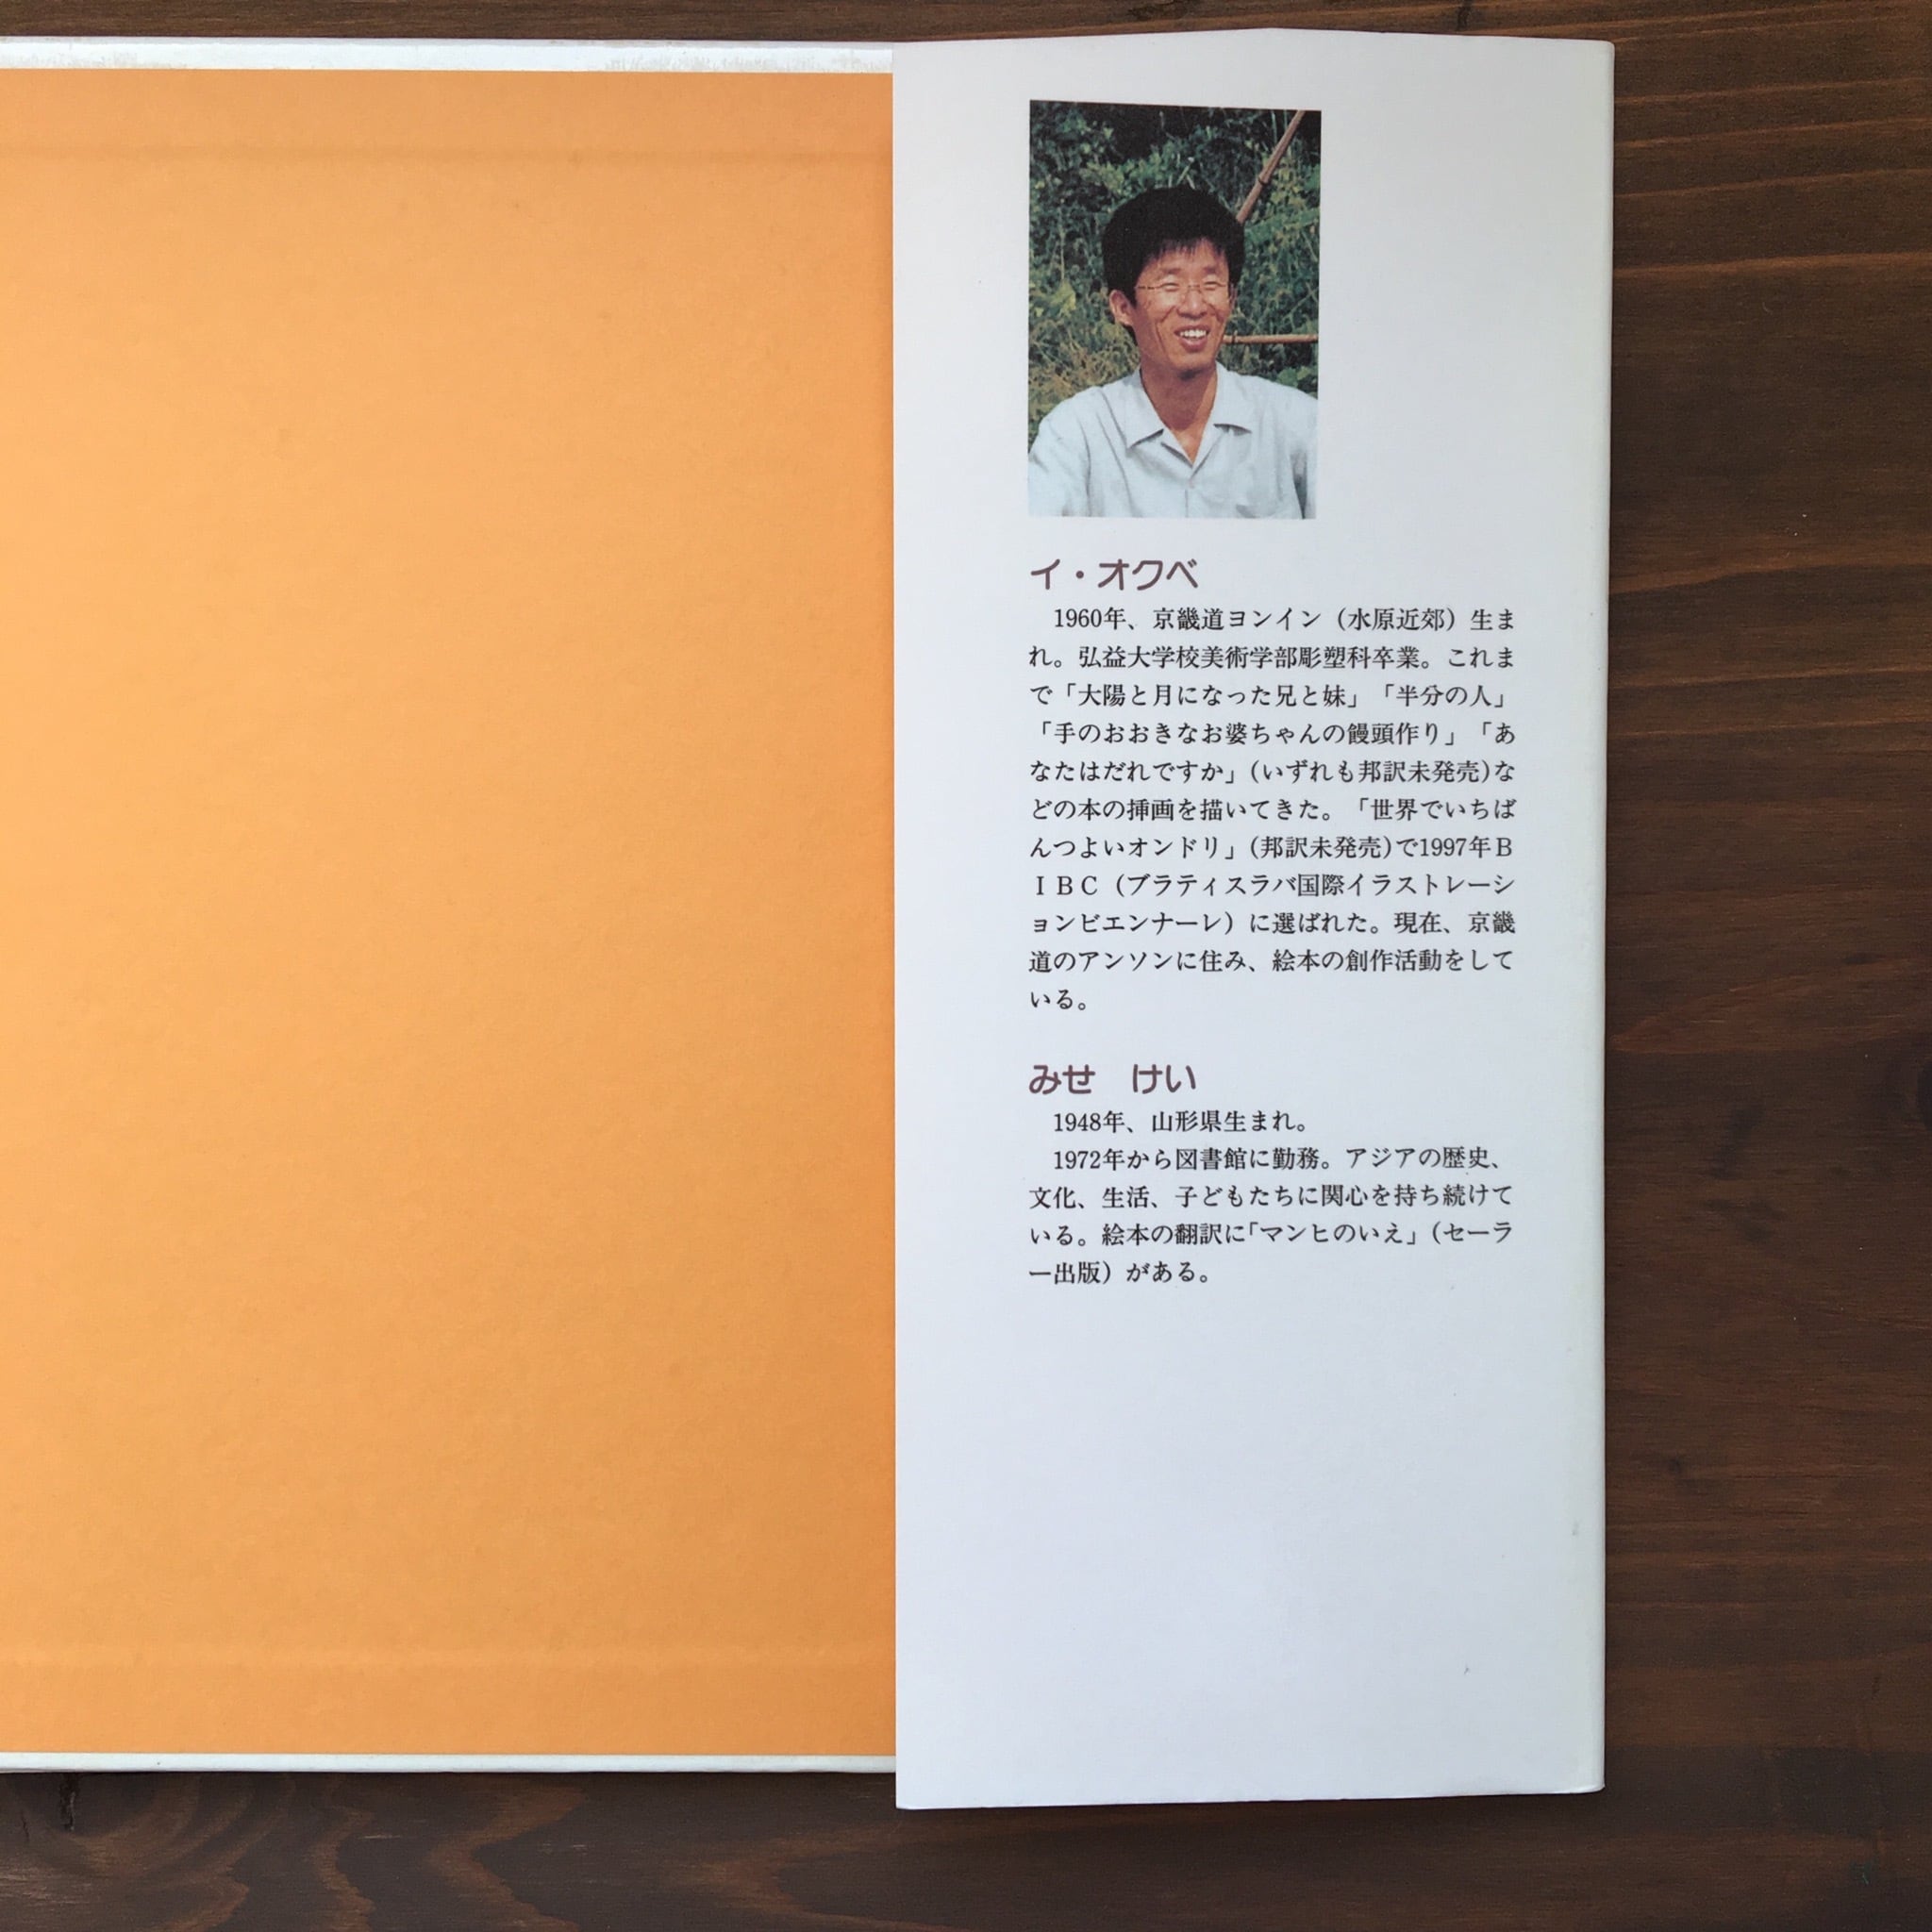 イ・オクベ
1960年、京畿道ヨンイン（水原近郊）生ま
れ。弘益大学校美術学部彫塑科卒業。これま
で「大陽と月になった兄と妹」「半分の人」
「手のおおきなお婆ちゃんの饅頭作り」「あ
なたはだれですか」（いずれも邦訳未発売）な
どの本の挿画を描いてきた。「世界でいちば
んつよいオンドリ」（邦訳未発売）で1997年Ｂ
ＩＢＣ（ブラティスラバ国際イラストレーシ
ョンビエンナーレ）に選ばれた。現在、京畿
道のアンソンに住み、絵本の創作活動をして
いる。
みせ　けい
1948年、山形県生まれ。
1972年から図書館に勤務。アジアの歴史、
文化、生活、子どもたちに関心を持ち続けて
いる。絵本の翻訳に「マンヒのいえ」（セーラ
ー出版）がある。